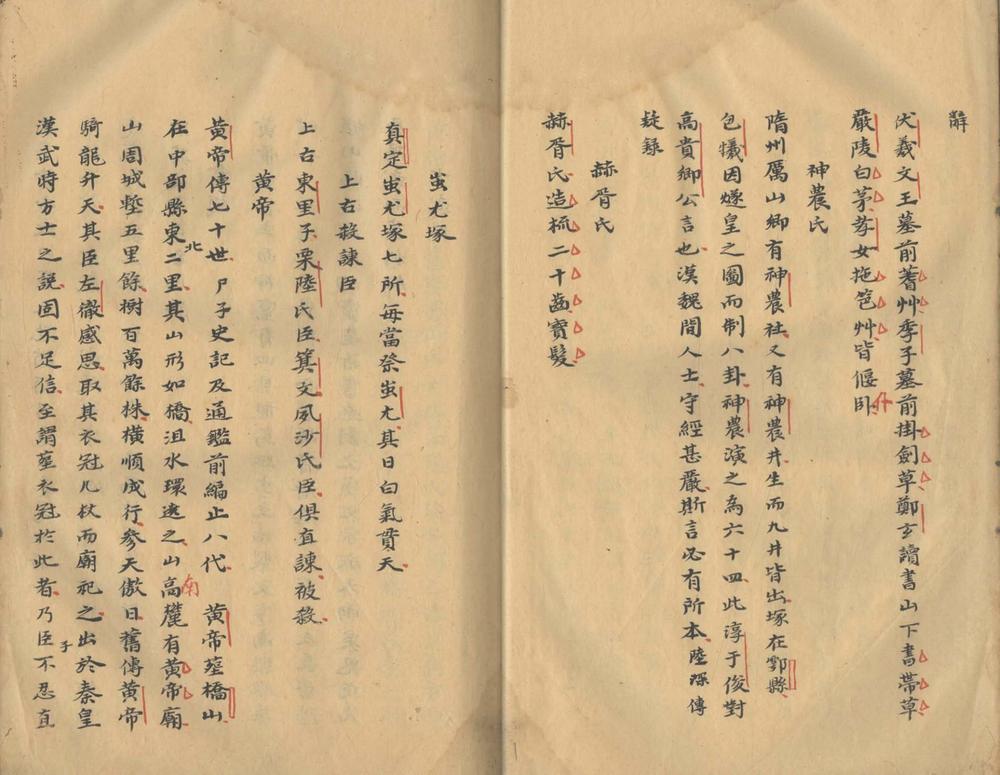 辭
伏羲文王墓前蓍艸季子墓前掛劍草鄭玄讀書山下書帶草
嚴陵白茅孝女拖笆艸皆偃卧
神農氏
隋州厲山鄉有神農社又有神農井生而九井皆出塚在酃縣
包犧因燧皇之圖而制八卦神農演之為六十四此淳于俊對
高貴鄉公言也漢魏間人士守經甚嚴斯言必有所本陸琛傳
疑錄
赫胥氏
赫胥氏造梳二十齒寶髮
蚩尤塚
真定蚩尤塚七所每當祭蚩尤其日白氣貫天
上古殺諫臣
上古東里子栗陸氏臣箕文夙沙氏臣俱直諫被殺
黃帝
黃帝傳七十世尸子史記及通鑑前編止八代 黃帝塟橋山
在中部縣東北二里其山形如橋沮水環遶之山高南麓有黃帝廟
山周城塹五里餘樹百萬餘株橫順成行參天傲日舊傳黃帝
騎龍升天其臣左徹感思取其衣冠几杖而廟祀之出於秦皇
漢武時方士之説固不足信至謂塟衣冠於此者乃臣子不忍直